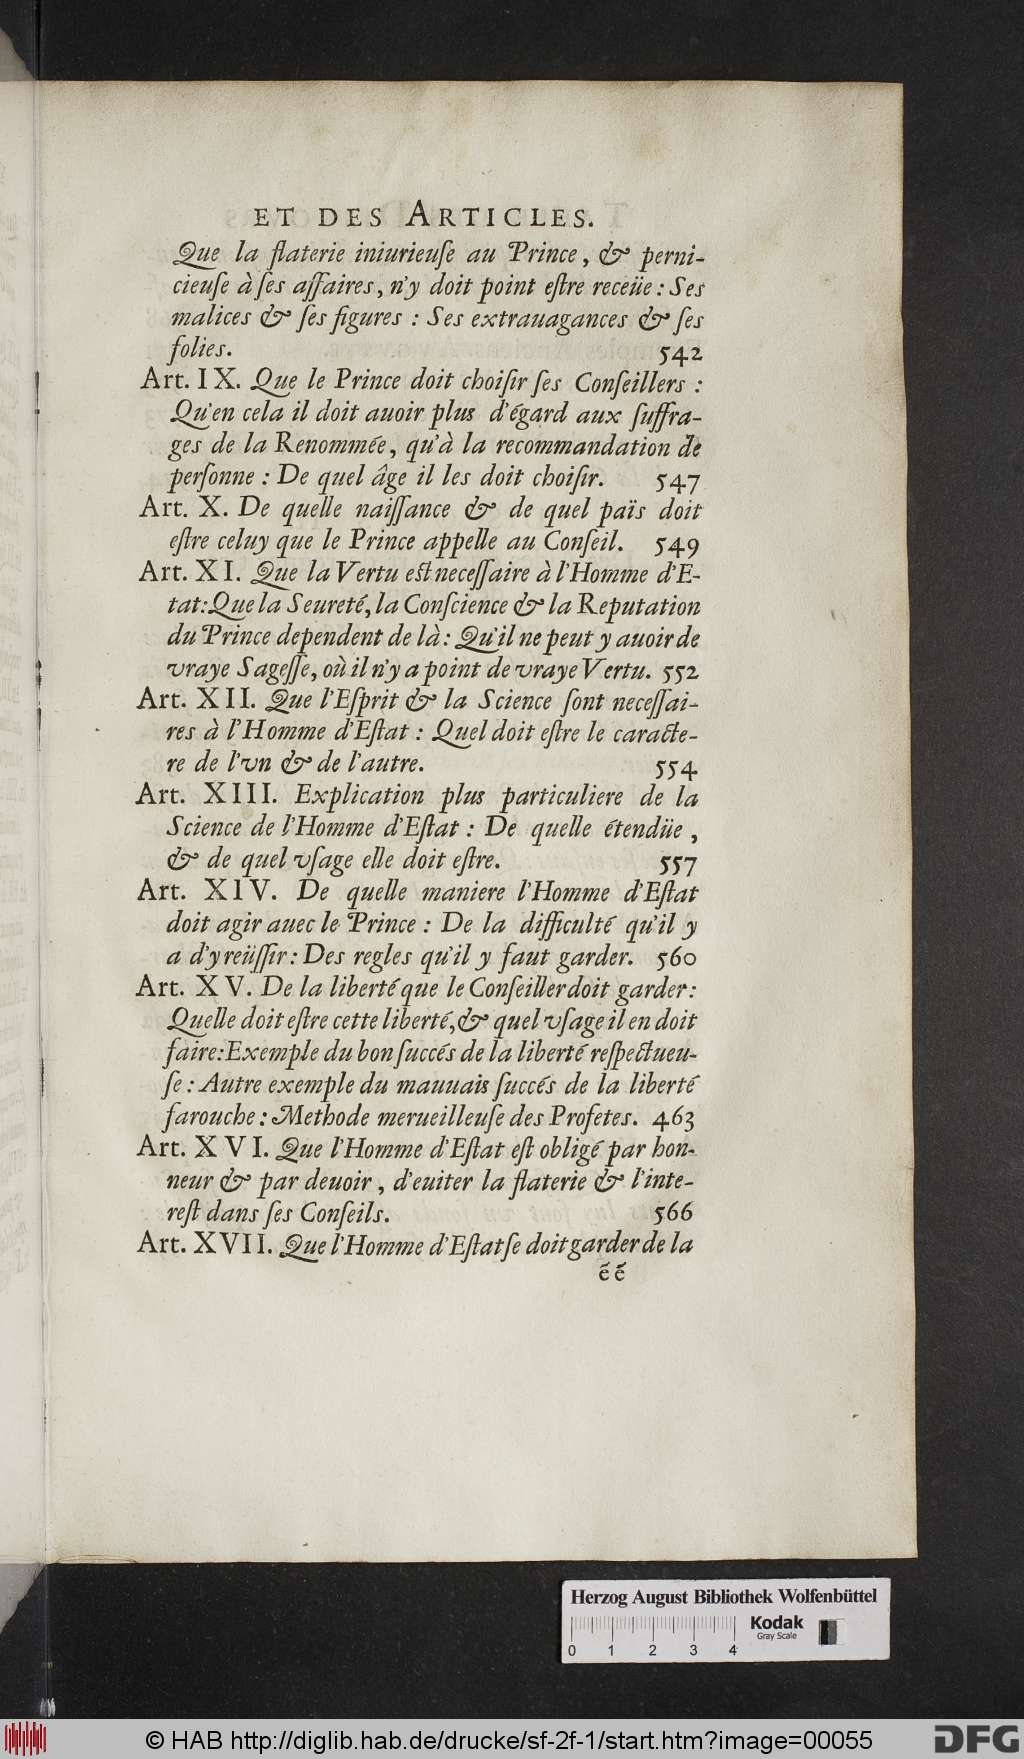 ET DES ARTICLES.
Que la flaterie iniurieuſe au Prince, & perni-
cieuſe à ſes affaires, n'y doit point eſtre receüe : Ses
malices & ſes figures : Ses extrauagances & ſes
folies. 542
Art. IX. Que le Prince doit choiſir ſes Conſeillers :
Qu'en cela il doit auoir plus d'égard aux ſuffra-
ges de la Renommée, qu'à la recommandation de
perſonne : De quel âge il les doit choiſir. 547
Art. X. De quelle naiſſance & de quel païs doit
eſtre celuy que le Prince appelle au Conſeil. 549
Art. XI. Que la Vertu eſt neceſſaire à l'Homme d'E-
tat: Que la Seureté, la Conſcience & la Reputation
du Prince dependent de là : Qu'il ne peut y auoir de
vraye Sageſſe, où il n'y a point de vraye Vertu. 552
Art. XII. Que l'Eſprit & la Science ſont neceſſai-
res à l'Homme d'Eſtat : Quel doit eſtre le caracte-
re de l'vn & de l'autre. 554
Art. XIII. Explication plus particuliere de la
Science de l'Homme d'Eſtat : De quelle étendüe,
& de quel vſage elle doit eſtre. 557
Art. XIV. De quelle maniere l'Homme d'Eſtat
doit agir auec le Prince : De la difficulté qu'il y
a d'y reüſſir : Des regles qu'il y faut garder. 560
Art. XV. De la liberté que le Conſeiller doit garder :
Quelle doit eſtre cette liberté, & quel vſage il en doit
faire: Exemple du bon ſuccés de la liberté reſpectueu-
ſe : Autre exemple du mauuais ſuccés de la liberté
farouche : Methode merueilleuſe des Profetes. 463
Art. XVI. Que l'Homme d'Eſtat eſt obligé par hon-
neur & par deuoir, d'euiter la flaterie & l'inte-
reſt dans ſes Conſeils. 566
Art. XVII. Que l'Homme d'Eſtat ſe doit garder de la
é é
Herzog August Bibliothek Wolfenbüttel
0 1 2 3 4
Kodak
Gray Scale
© HAB http://diglib.hab.de/drucke/sf-2f-1/start.htm?image=00055
DFG